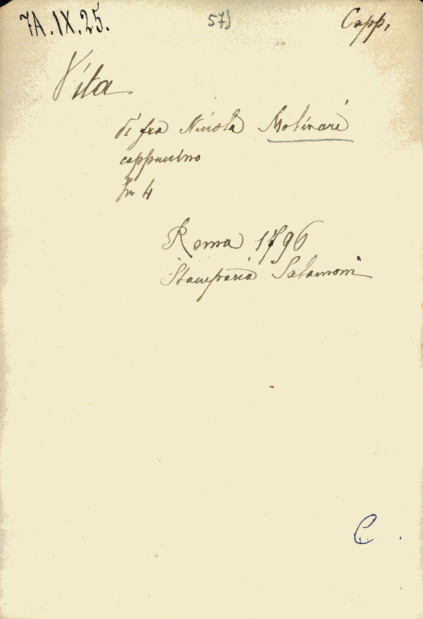 7A.IX.25. 57) Capp.
Vita
di fra Nicola Molinari
cappuccino
In 4
Roma 1796
Stamparia Salamoni
C.